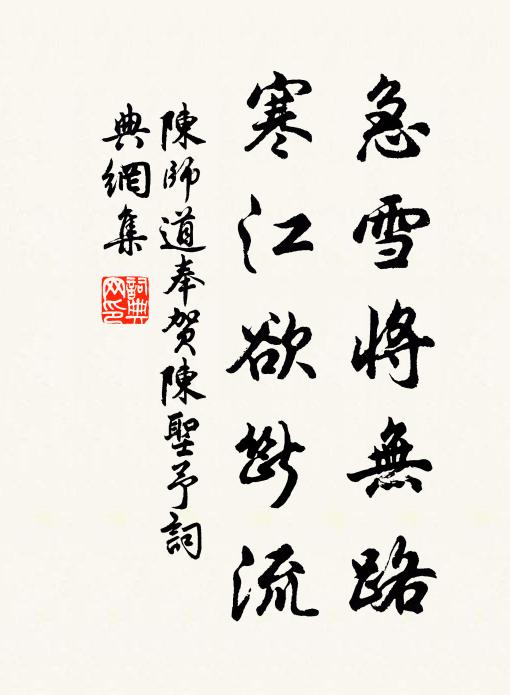 急雪將無路
寒江欲斷流
陳師道奉賀陳聖予詞
典網集
詞典網印